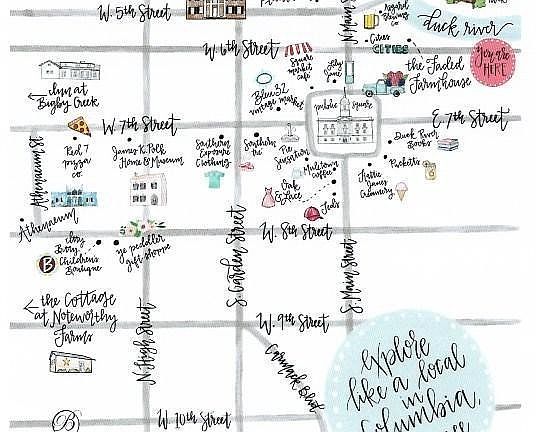 W. 5th Street
N. Main St
Asgard
Brewing
Co
duck river
Cities
CITIES
You are
HERE
the Faded
Farmhouse
W. 6th Street
Square
Market
Cafe
Lily
Jane
Inn at
Bigby Creek
Blue 32
vintage market
public square
E. 7th Street
W. 7th Street
Duck River
Books
Athenaeum St
Red 7
pizza
co.
James K. Polk
Home & Museum
Southern
Exposure
Clothing
Southern
Tre
Pie
Sensation
Muletown
coffee
Puckett's
Hattie
Jane's
Creamery
Oak
& Lace
Ted's
Athenaeum
W. 8th Street
Itsy
Bitsy
Children's
Boutique
B
ye peddler
gift shoppe
S. Garden Street
S. Main Street
the Cottage
at Noteworthy
Farms
N. High Street
W. 9th Street
Carmack Blvd
explore
like a local
in
Columbia,
B
W. 10th Street